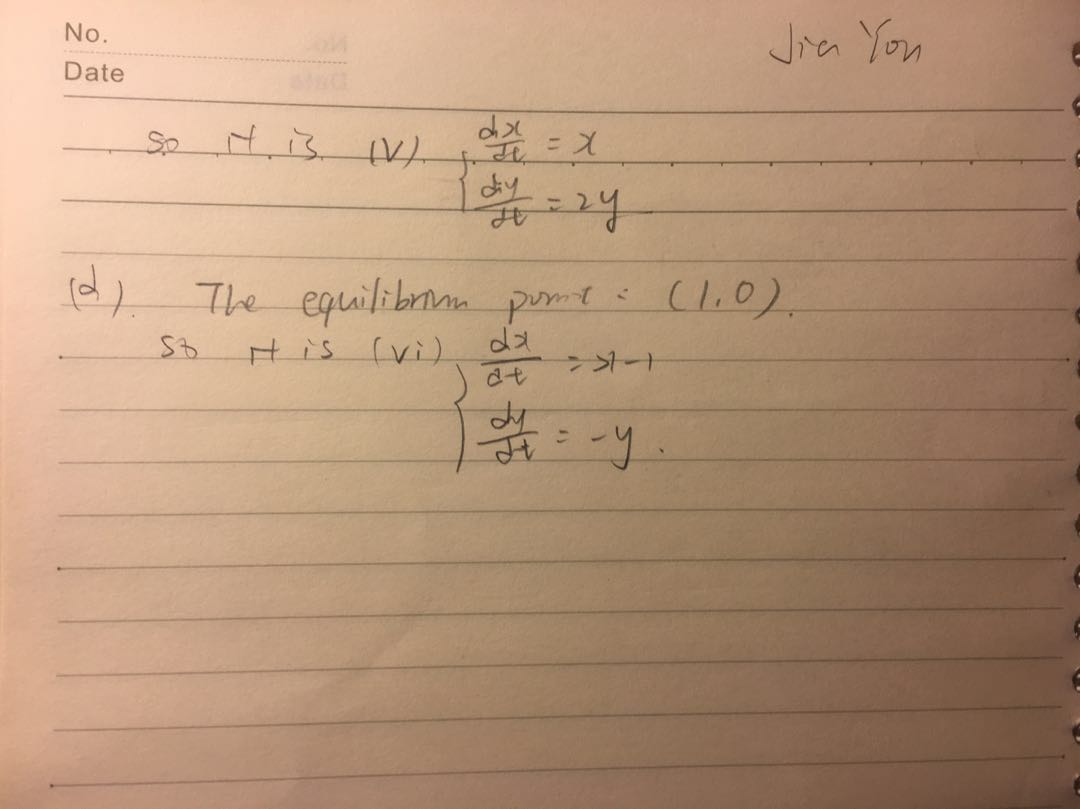 No.
Jia You
Date
so it is (V). { dx/dt = x
dy/dt = 2y
(d). The equilibrium point : (1,0).
so it is (vi) { dx/dt = x-1
dy/dt = -y.